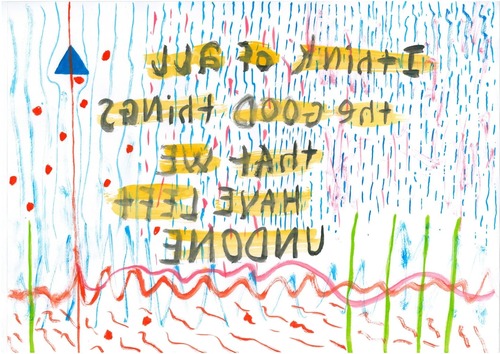 I think of all
the GOOD things
that WE
HAVE LEFT
UNDONE